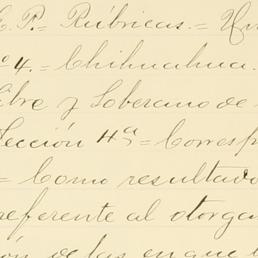 E. P. = Rúbricas. = Un
º 4. = Chihuahua.
ibre y Soberano de
Sección 4ª = Corresp
= Como resultado
referente al otorga
ón de las en que